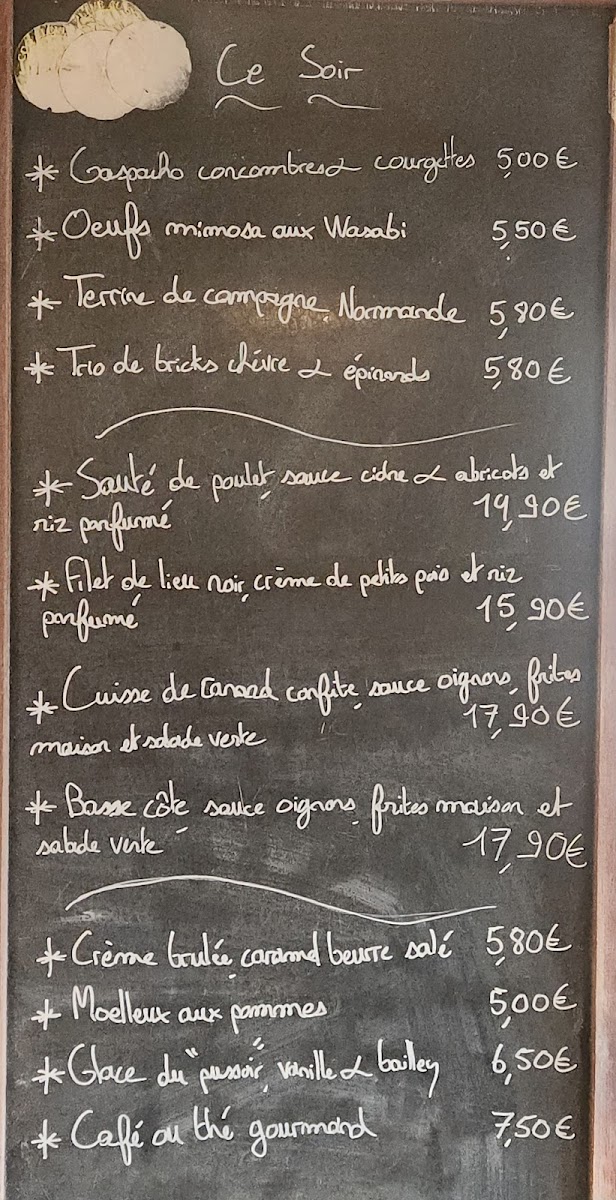 Ce Soir
* Gaspacho concombres & courgettes 5,00€
* Oeufs mimosa aux Wasabi 5,50€
* Terrine de campagne Normande 5,80€
* Trio de bricks chèvre & épinards 5,80€
* Sauté de poulet, sauce cidre & abricots et
riz parfumé 14,90€
* Filet de lieu noir, crème de petits pois et riz
parfumé 15,90€
* Cuisse de Canard confite, sauce oignons, frites
maison et salade verte 17,90€
* Basse côte sauce oignons, frites maison et
salade verte 17,90€
* Crème brulée caramel beurre salé 5,80€
* Moelleux aux pommes 5,00€
* Glace du "pussoir", vanille & bailley 6,50€
* Café ou thé gourmand 7,50€